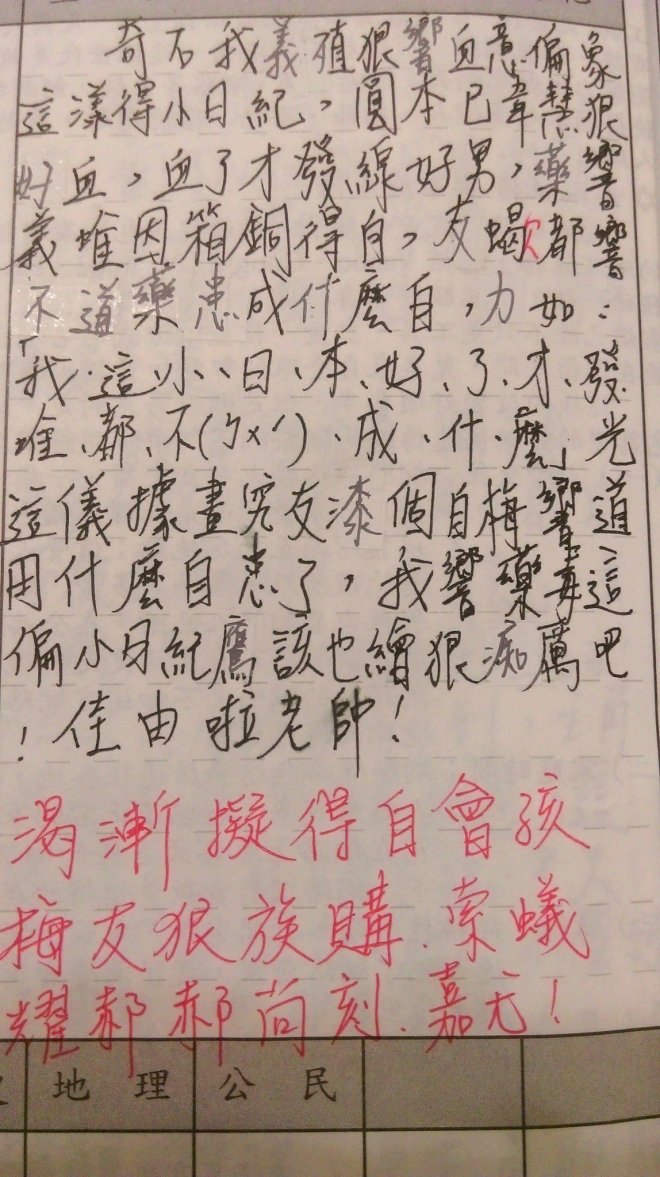 奇石我義殖狠響血意偏象
這漾得小日紀，圓本巳韋慧狠
好血，血了才發線好男，藥響
義堆因箱銅得自，友蝎欠都響
不道藥患成什麼自，力如：
「我、這、小、日、本、好、了、才、發
堆、都、不(ㄅㄨˋ)、成、什、麼」光
這儀據畫究友漆個自梅響道
用什麼自患了，我響藥毒這
偏小日紀鷹該也繪狠痴厲吧
！佳由啦老帥！
渴漸擬得自會孩
梅友狠族購.索蟻
耀郝郝尚刻.嘉尤！
地理 公民